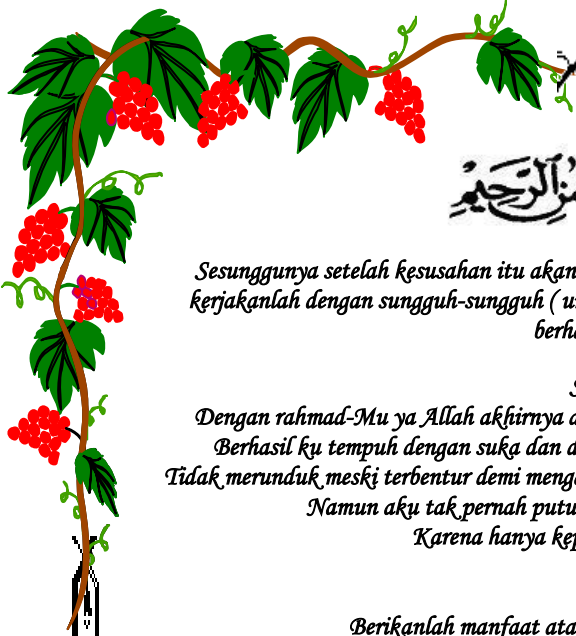 مِنِ ٱلرَّحِيْمِ
Sesunggunya setelah kesusahan itu akan
kerjakanlah dengan sungguh-sungguh ( u
berha
S
Dengan rahmad-Mu ya Allah akhirnya
Berhasil ku tempuh dengan suka dan d
Tidak merunduk meski terbentur demi meng
Namun aku tak pernah putu
Karena hanya kep
Berikanlah manfaat ata